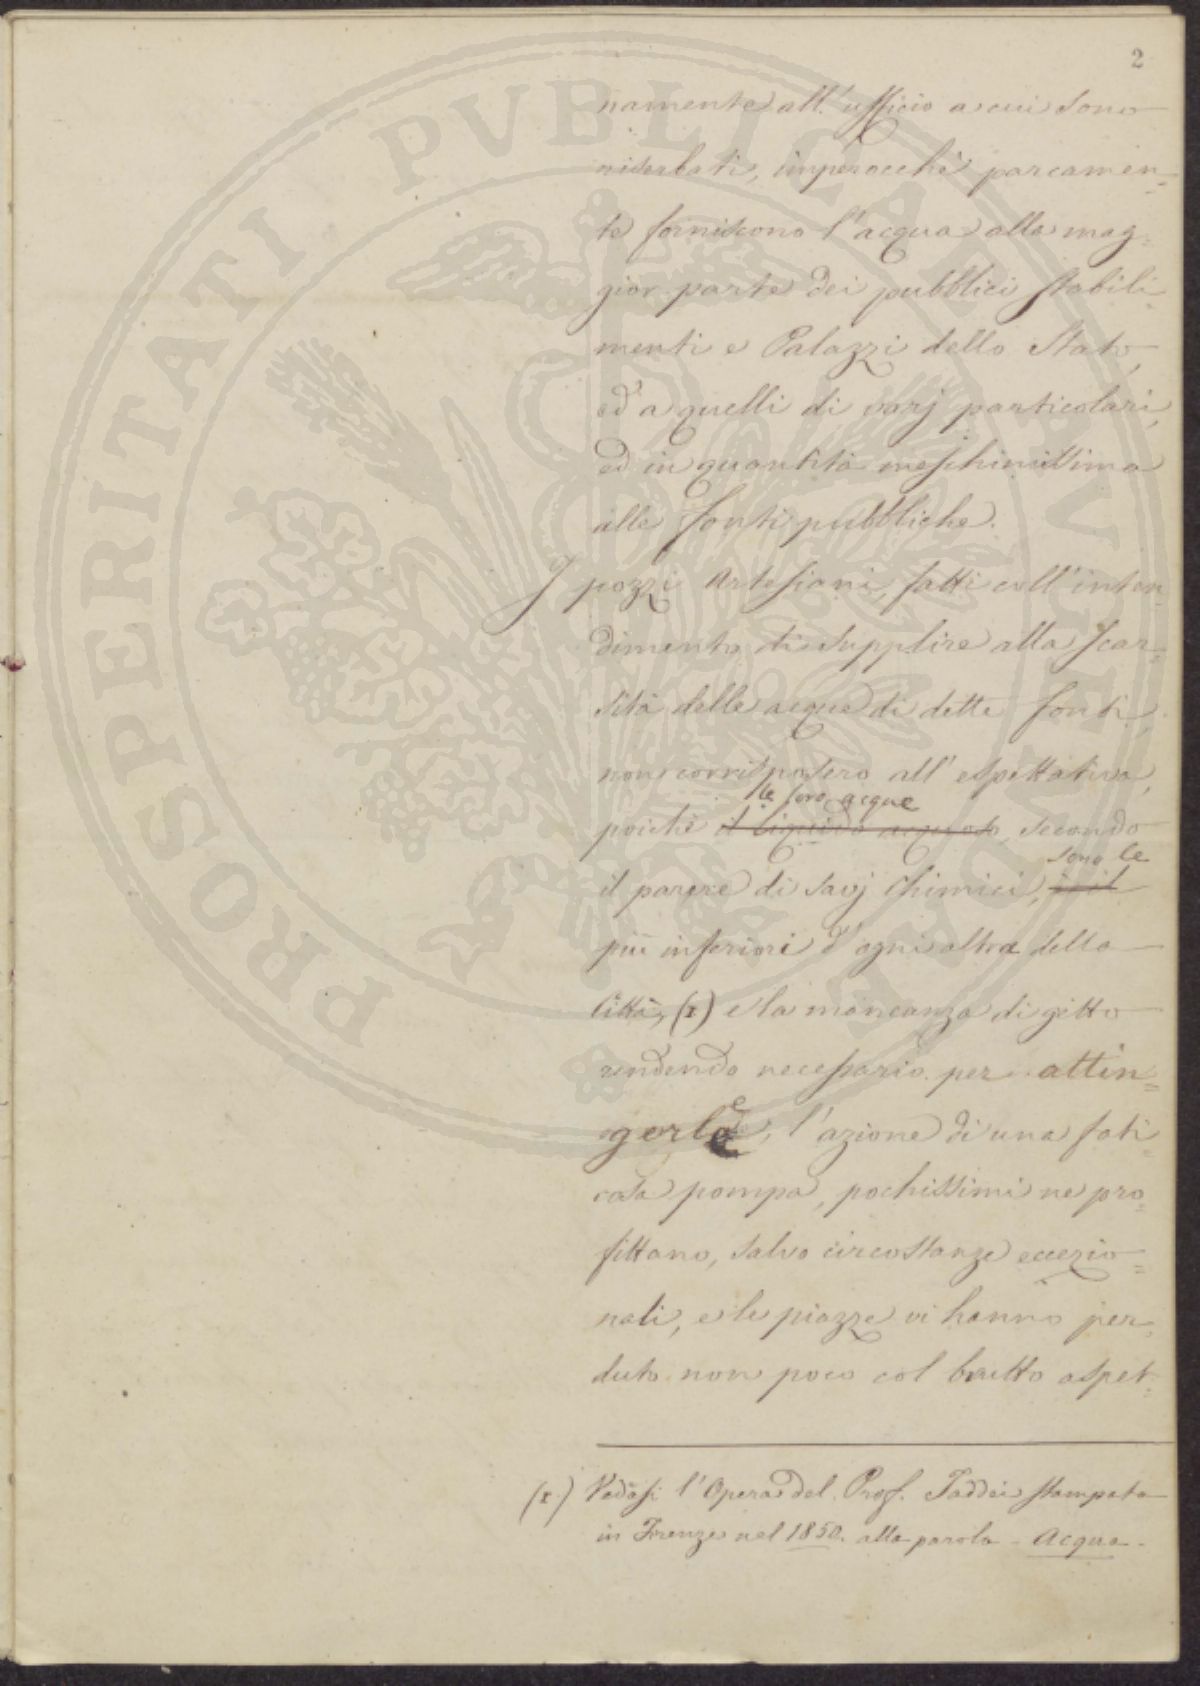 2
namente all'ufficio a cui sono
riserbati, imperocchè parcamen=
te forniscono l'acqua alla mag=
gior parte dei pubblici stabili=
menti e Palazzi dello Stato,
ed a quelli di varj particolari,
ed in quantità meschinissima
alle fonti pubbliche.
I pozzi Artesiani, fatti coll'inten=
dimento di supplire alla scar=
sità delle acque di dette fonti,
non corrisposero all'espettativa,
le loro acque
poichè il liquido acquoso, secondo
sono le
il parere di savj Chimici, è il
più inferiori d'ogni altra della
Città, (1) e la mancanza di getto
rendendo necessario per attin=
gerle, l'azione di una fati=
cosa pompa, pochissimi ne pro=
fittano, salvo circostanze eccezio=
nali, e le piazze vi hanno per=
duto non poco col brutto aspet=
(1) Vedasi l'Opera del Prof. Taddei stampata
in Firenze nel 1850. alla parola - Acqua -
PROSPERITATI PVBLICAE AVGENDAE